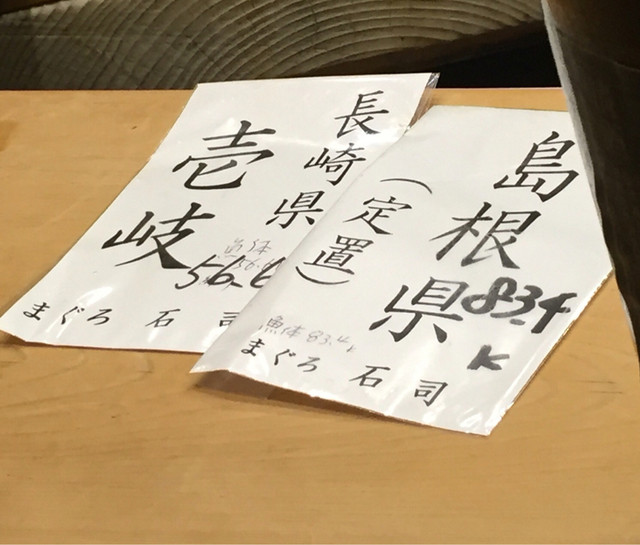 長崎県
壱岐
魚体
56.6
まぐろ 石司
島根県
(定置)
83.4
K
魚体 83.4k
まぐろ 石司